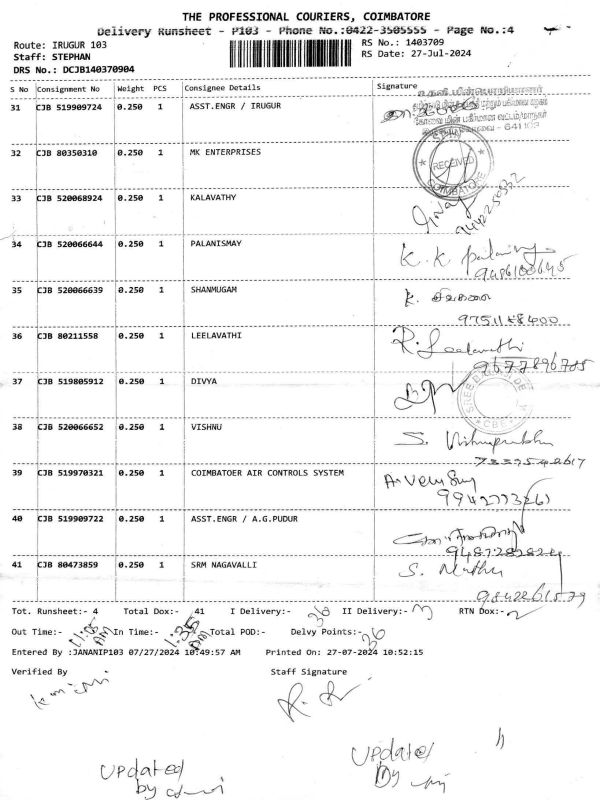 THE PROFESSIONAL COURIERS, COIMBATORE
Delivery Runsheet - P103 - Phone No.:0422-3505555 - Page No.:4
Route: IRUGUR 103
RS No.: 1403709
Staff: STEPHAN
RS Date: 27-Jul-2024
DRS No.: DCJB140370904
S No Consignment No Weight PCS Consignee Details Signature
31 CJB 519909724 0.250 1 ASST.ENGR / IRUGUR
- 641103
32 CJB 80350310 0.250 1 MK ENTERPRISES
RECEIVED
COIMBATORE
33 CJB 520068924 0.250 1 KALAVATHY
34 CJB 520066644 0.250 1 PALANISMAY
K. K. Palanisamy
35 CJB 520066639 0.250 1 SHANMUGAM
9751158400
36 CJB 80211558 0.250 1 LEELAVATHI
R. Leelavathi
37 CJB 519805912 0.250 1 DIVYA
CBE
38 CJB 520066652 0.250 1 VISHNU
S. Vishnuprabhu
39 CJB 519970321 0.250 1 COIMBATOER AIR CONTROLS SYSTEM
40 CJB 519909722 0.250 1 ASST.ENGR / A.G.PUDUR
41 CJB 80473859 0.250 1 SRM NAGAVALLI
S. Muthu
9842261579
Tot. Runsheet:- 4 Total Dox:- 41 I Delivery:- 36 II Delivery:- 3 RTN Dox:- 2
Out Time:- 11:05 AM In Time:- 1:35 Total POD:- Delvy Points:- 36
Entered By :JANANIP103 07/27/2024 10:49:57 AM Printed On: 27-07-2024 10:52:15
Verified By Staff Signature
updated
by
updated
by